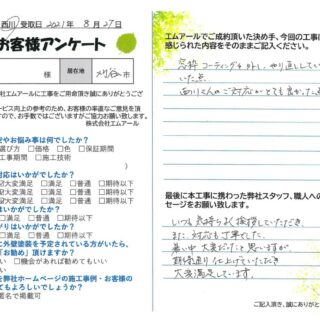 西川 受取日 2021年 8月27日
お客様アンケート
様 居住地 刈谷市
株式会社エムアールに工事をご用命頂き誠にありがとうござい
サービス向上の参考のため、お客様の率直なご意見を頂
すので、お手数ではございますがご協力お願い致します。
株式会社エムアール
安やお悩み事は何でしたか?
選び方 □価格 □色 □保証期間
工事期間 □施工技術
対応はいかがでしたか?
大変満足 □満足 □普通 □期待以下
大変満足 □満足 □普通 □期待以下
はいかがでしたか?
大変満足 □満足 □普通 □期待以下
がりはいかがでしたか?
□満足 □普通 □期待以下
に外壁塗装を予定されている方がいたら、
「お勧め」頂けますか?
い □機会があれば勧めてもいい
い
を弊社ホームページの施工事例・お客様の
てもよろしいでしょうか?
匿名で掲載可
エムアールでご成約頂いた決め手、今回の工事に
感じられた内容をそのままご記入ください。
窓枠コーティングを外し、やり直してい
いた点。
西川くんのご対応がとても良かった
最後に本工事に携わった弊社スタッフ、職人への
セージをお願い致します。
いつも気持ちよく挨拶していただき
また、対応も丁寧でした。
暑い中 大変だったと思いますが、
綺麗に仕上げていただき
大変満足しています。
ご記入頂き、誠にありがと